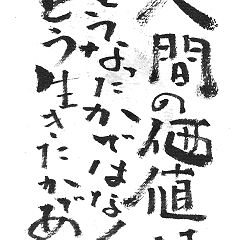 人間の価値は
どうなったかではなく
どう生きたかであ